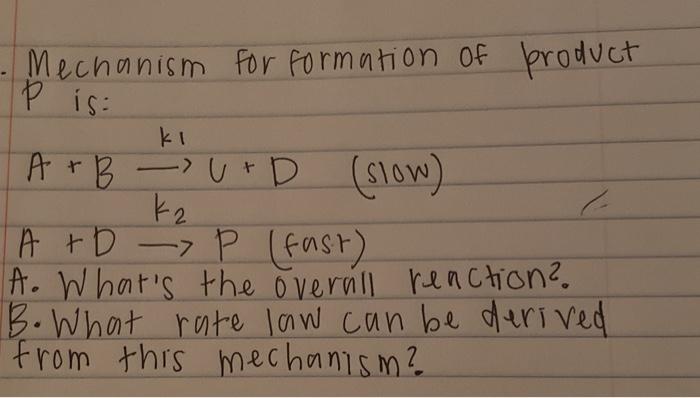 . Mechanism for formation of product
P is:
k1
A + B → U + D (slow)
k2
A + D → P (fast)
A. What's the overall reaction?.
B. What rate law can be derived
from this mechanism?